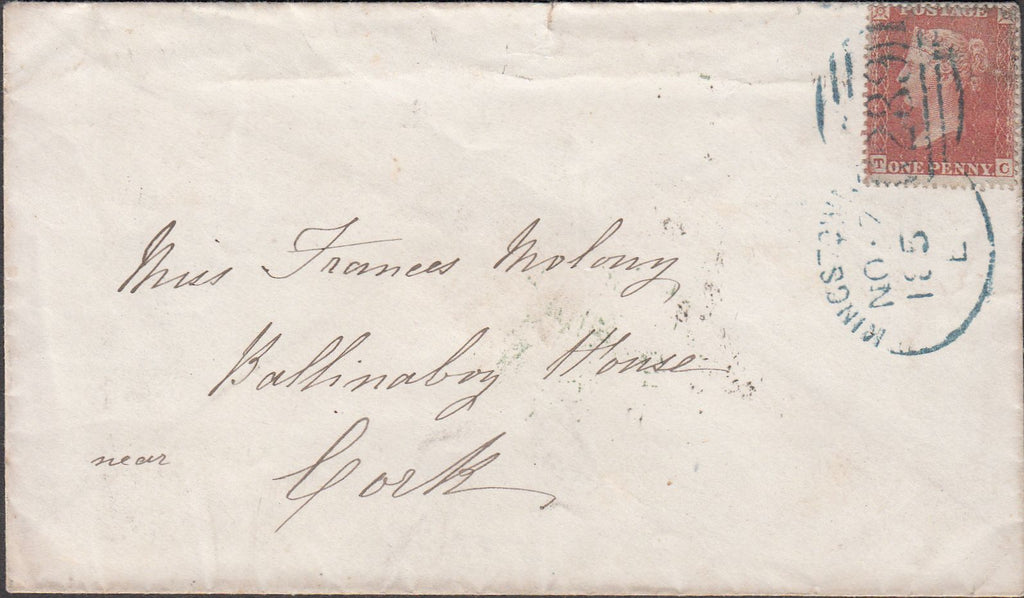 POSTAGE
T ONE PENNY C
KINGSTOWN
NO 2
185
L
Miss Frances Molony
Ballinaboy House
near Cork